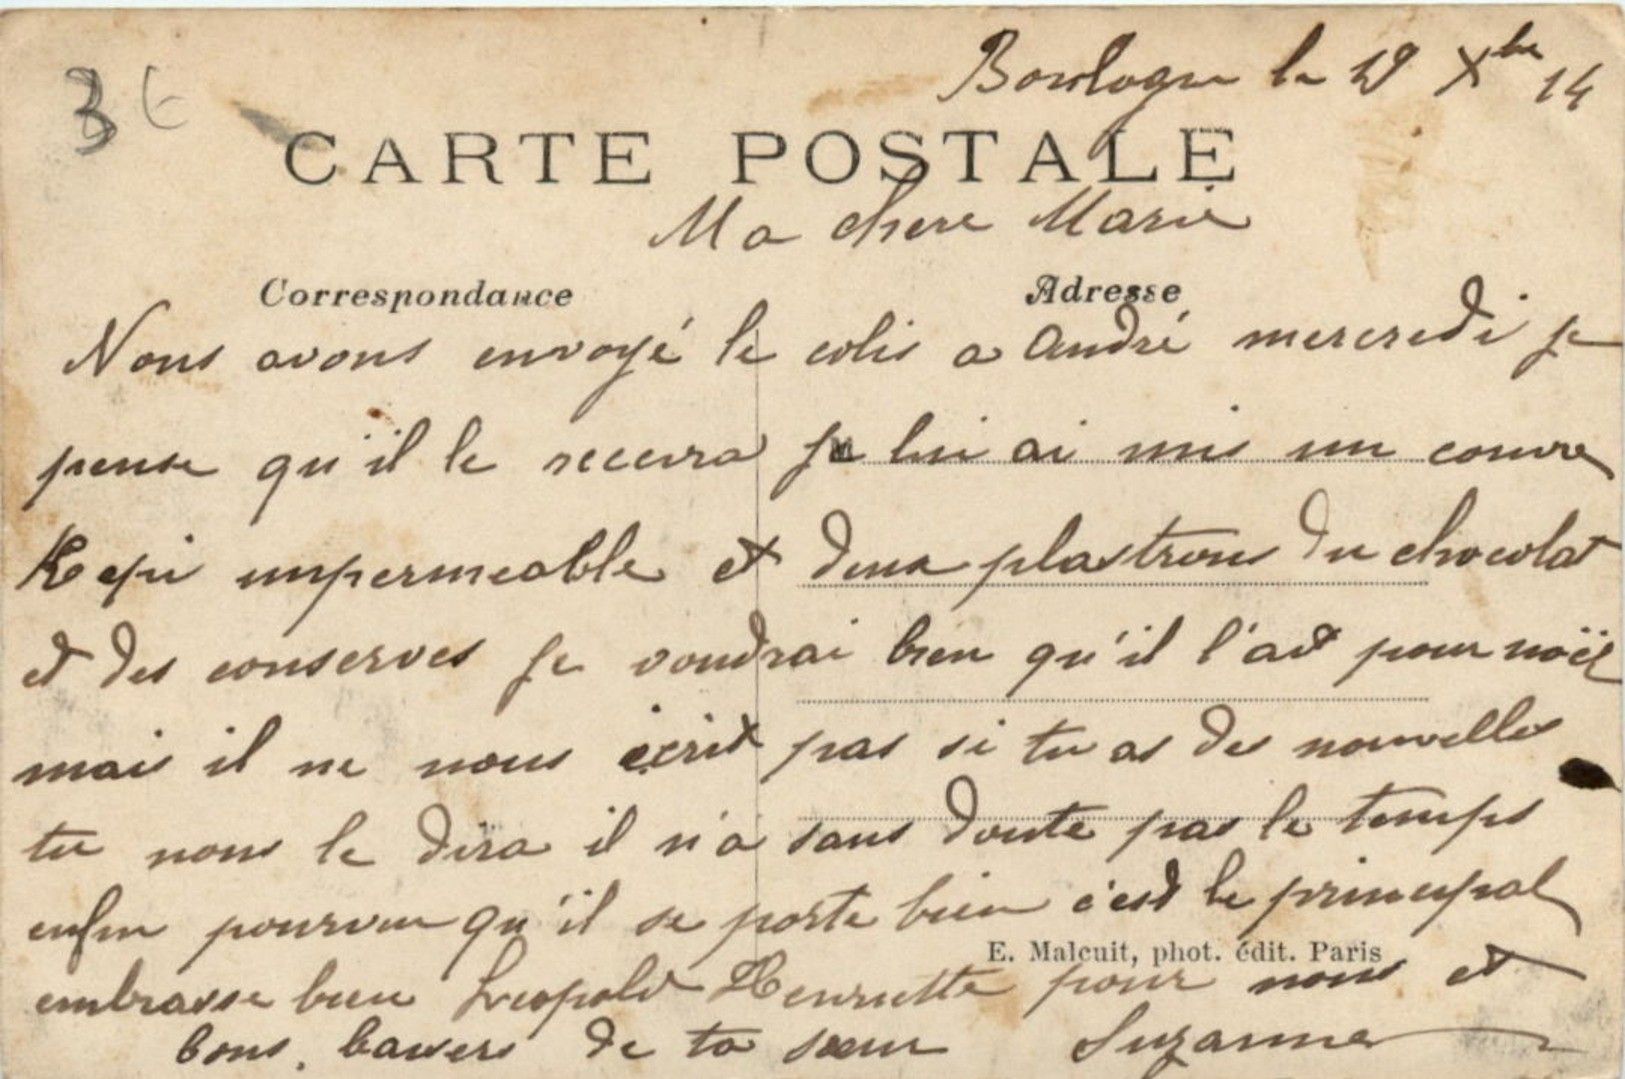 Boulogne le 19 Xbre 14
3 €
CARTE POSTALE
Ma chere Marie
Correspondance Adresse
Nous avons envoyé le colis a André mercredi je
pense qu'il le recevra je lui ai mis un couvre
Kepi impermeable et deux plastrons du chocolat
et des conserves je voudrai bien qu'il l'ait pour noël
mais il ne nous écrit pas si tu as des nouvelles
tu nous le dira il n'a sans doute pas le temps
enfin pourvu qu'il se porte bien c'est le principal
E. Malcuit, phot. édit. Paris
embrasse bien Leopold Henriette pour nous et
bons baisers de ta sœur Suzanne